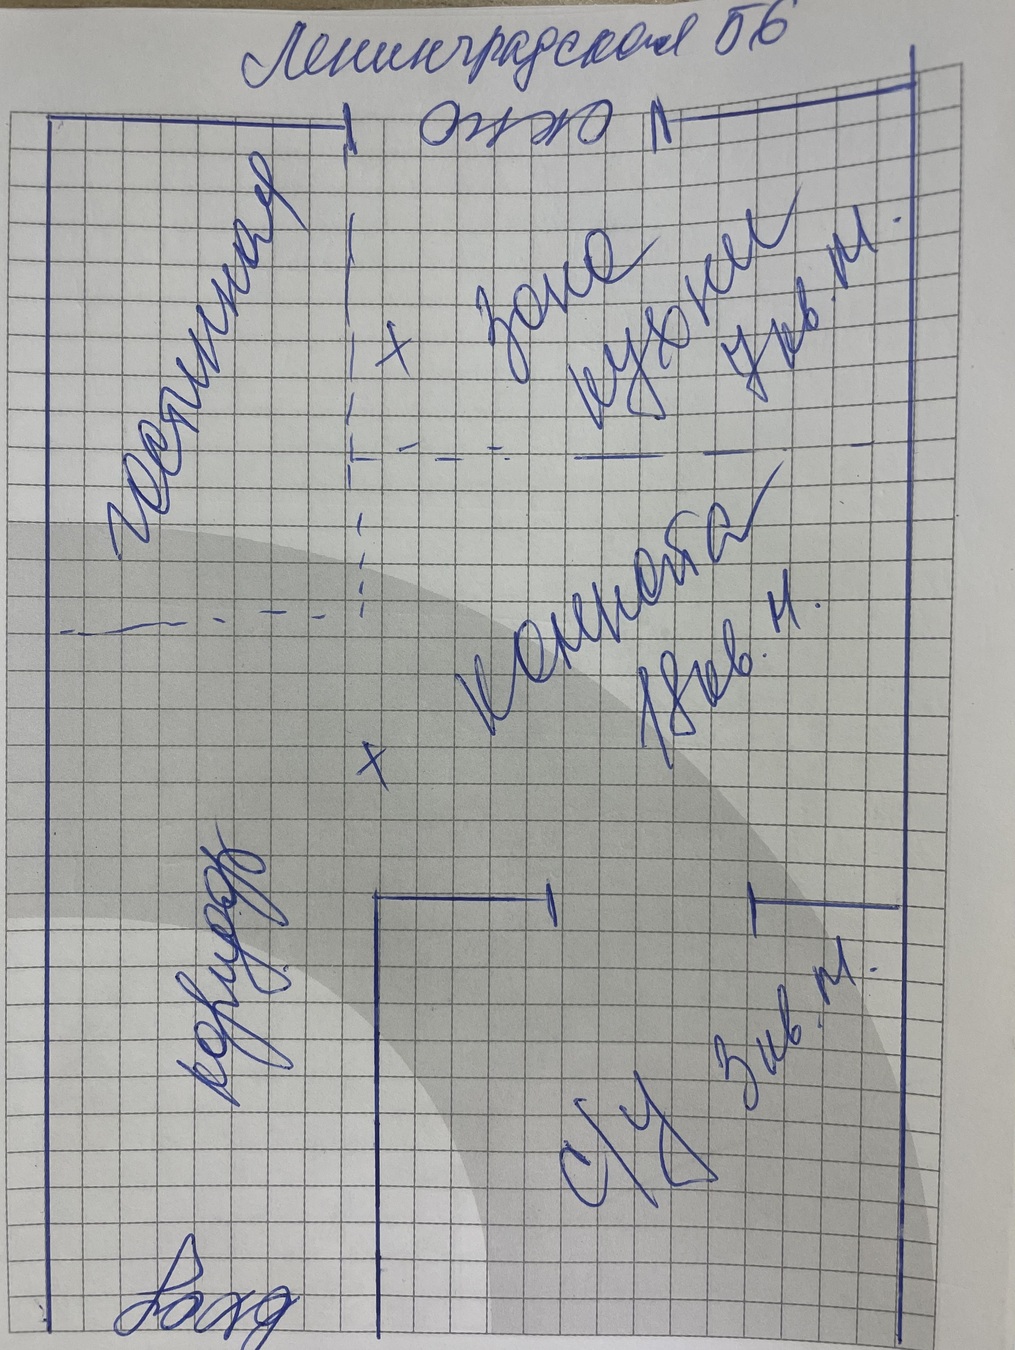 Ленинградская 56
окно
гостиная
зона
кухни
7 кв. м.
х
комната
18 кв. м.
х
коридор
с/у
3 кв. м.
вход